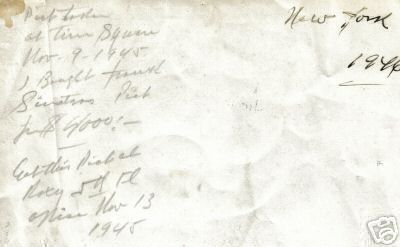 Pict taken
at Time Square
Nov. 9 - 1945
I Bought Frank
Sinatras Pict
for $ 5000!-
Got this Pict at
Roxy 5th Fl
office Nov 13
1945
New York
1946
ebay